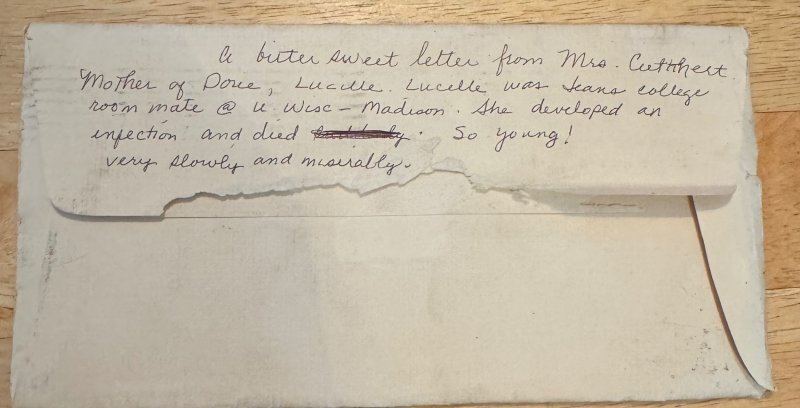 A bitter sweet letter from Mrs. Cuthhert
Mother of Dove, Lucille. Lucelle was Jeans college
room mate @ U Wisc - Madison. She developed an
infection and died. So young!
very slowly and miserably.